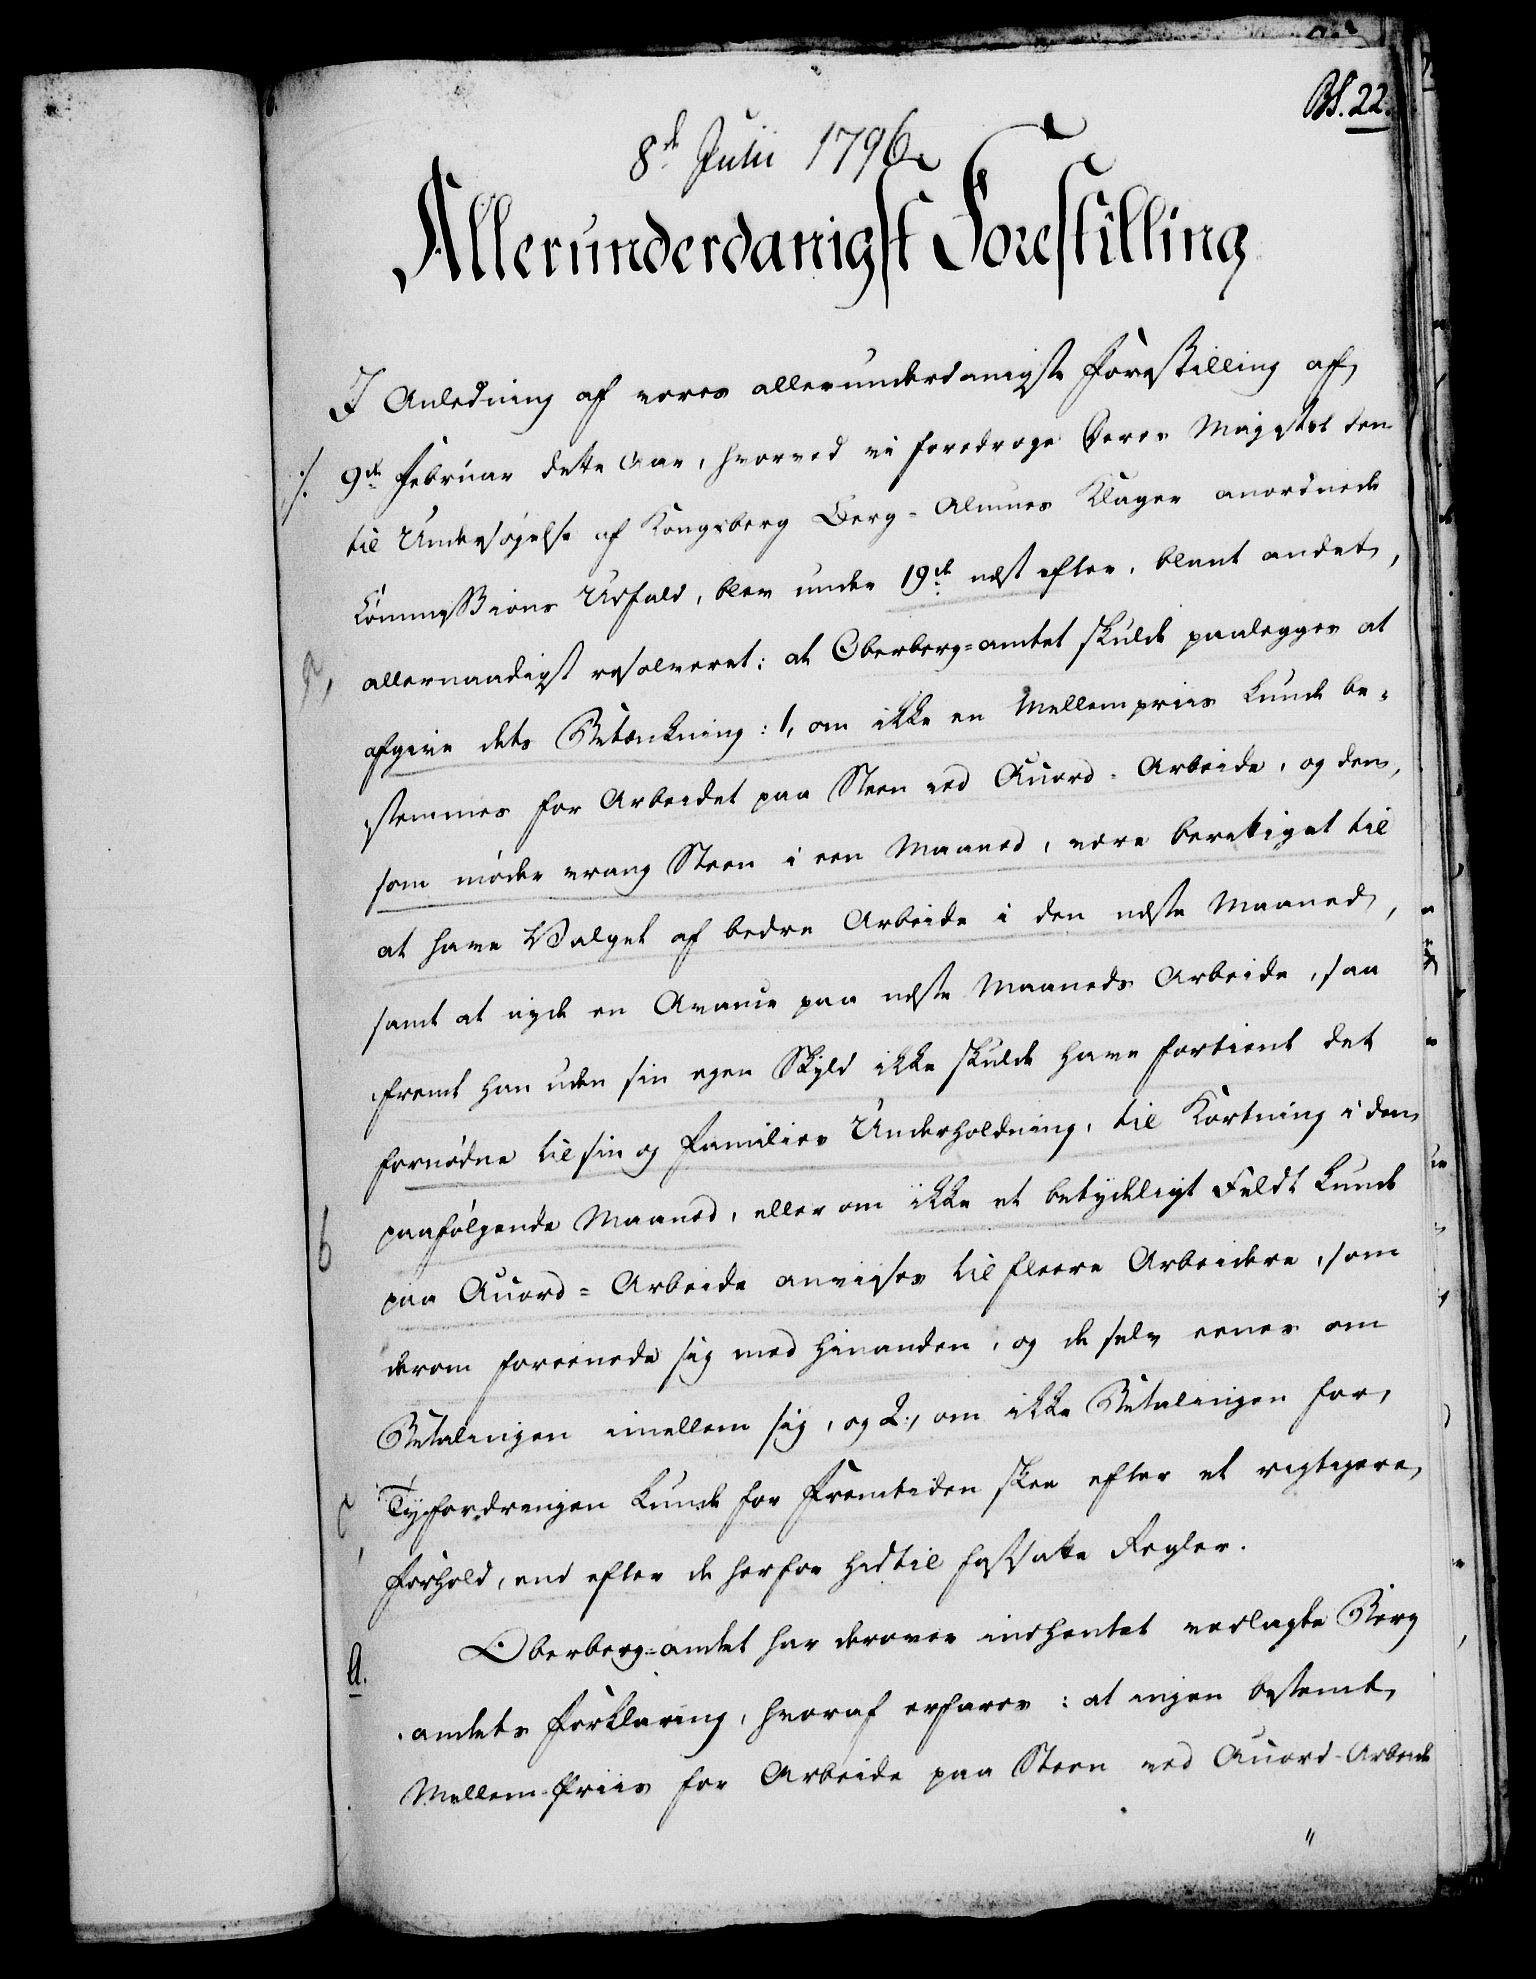 Bl. 22.
8de Julii 1796.
Allerunderdanigst Forestilling
I Anledning af vores allerunderdanigste Forestilling af
./. 9de Februar dette Aar, hvorved vi foredroge Deres Majestet den
til Undersøgelse af Kongsberg Berg-Almues Klager anordnede
Commissions Udfald, blev under 19de næst efter, blant andet,
allernaadigst resolveret: at Oberberg-amtet skulde paalegges at
afgive dets Betænkning: 1, om ikke en Mellempriis kunde be-
stemmes for Arbeidet paa Steen ved Accord-Arbeide, og den,
som møder vrang Steen i een Maaned, være berettiget til
at have Valget af bedre Arbeide i den næste Maaned,
samt at nyde en Avance paa næste Maaneds Arbeide, saa
fremt han uden sin egen Skyld ikke skulde have fortient det
fornødne til sin og Families Underholdning, til Kortning i den
6 paafølgende Maaned, eller om ikke et betydeligt Feldt kunde
paa Accord-Arbeide anvises til fleere Arbeidere, som
derom foreenede sig med hinanden, og de selv eenes om
Betalingen imellem sig, og 2, om ikke Betalingen for
Tyefordringen kunde for Fremtiden skee efter et rigtigere
Forhold, end efter de herfor hidtil fastsatte Regler.
A. Oberberg-amtet har derover indhentet vedlagte Berg
amtets Forklaring, hvoraf erfares: at ingen bestemt
Mellem-Priis for Arbeide paa Steen ved Accord-Arbeide
"